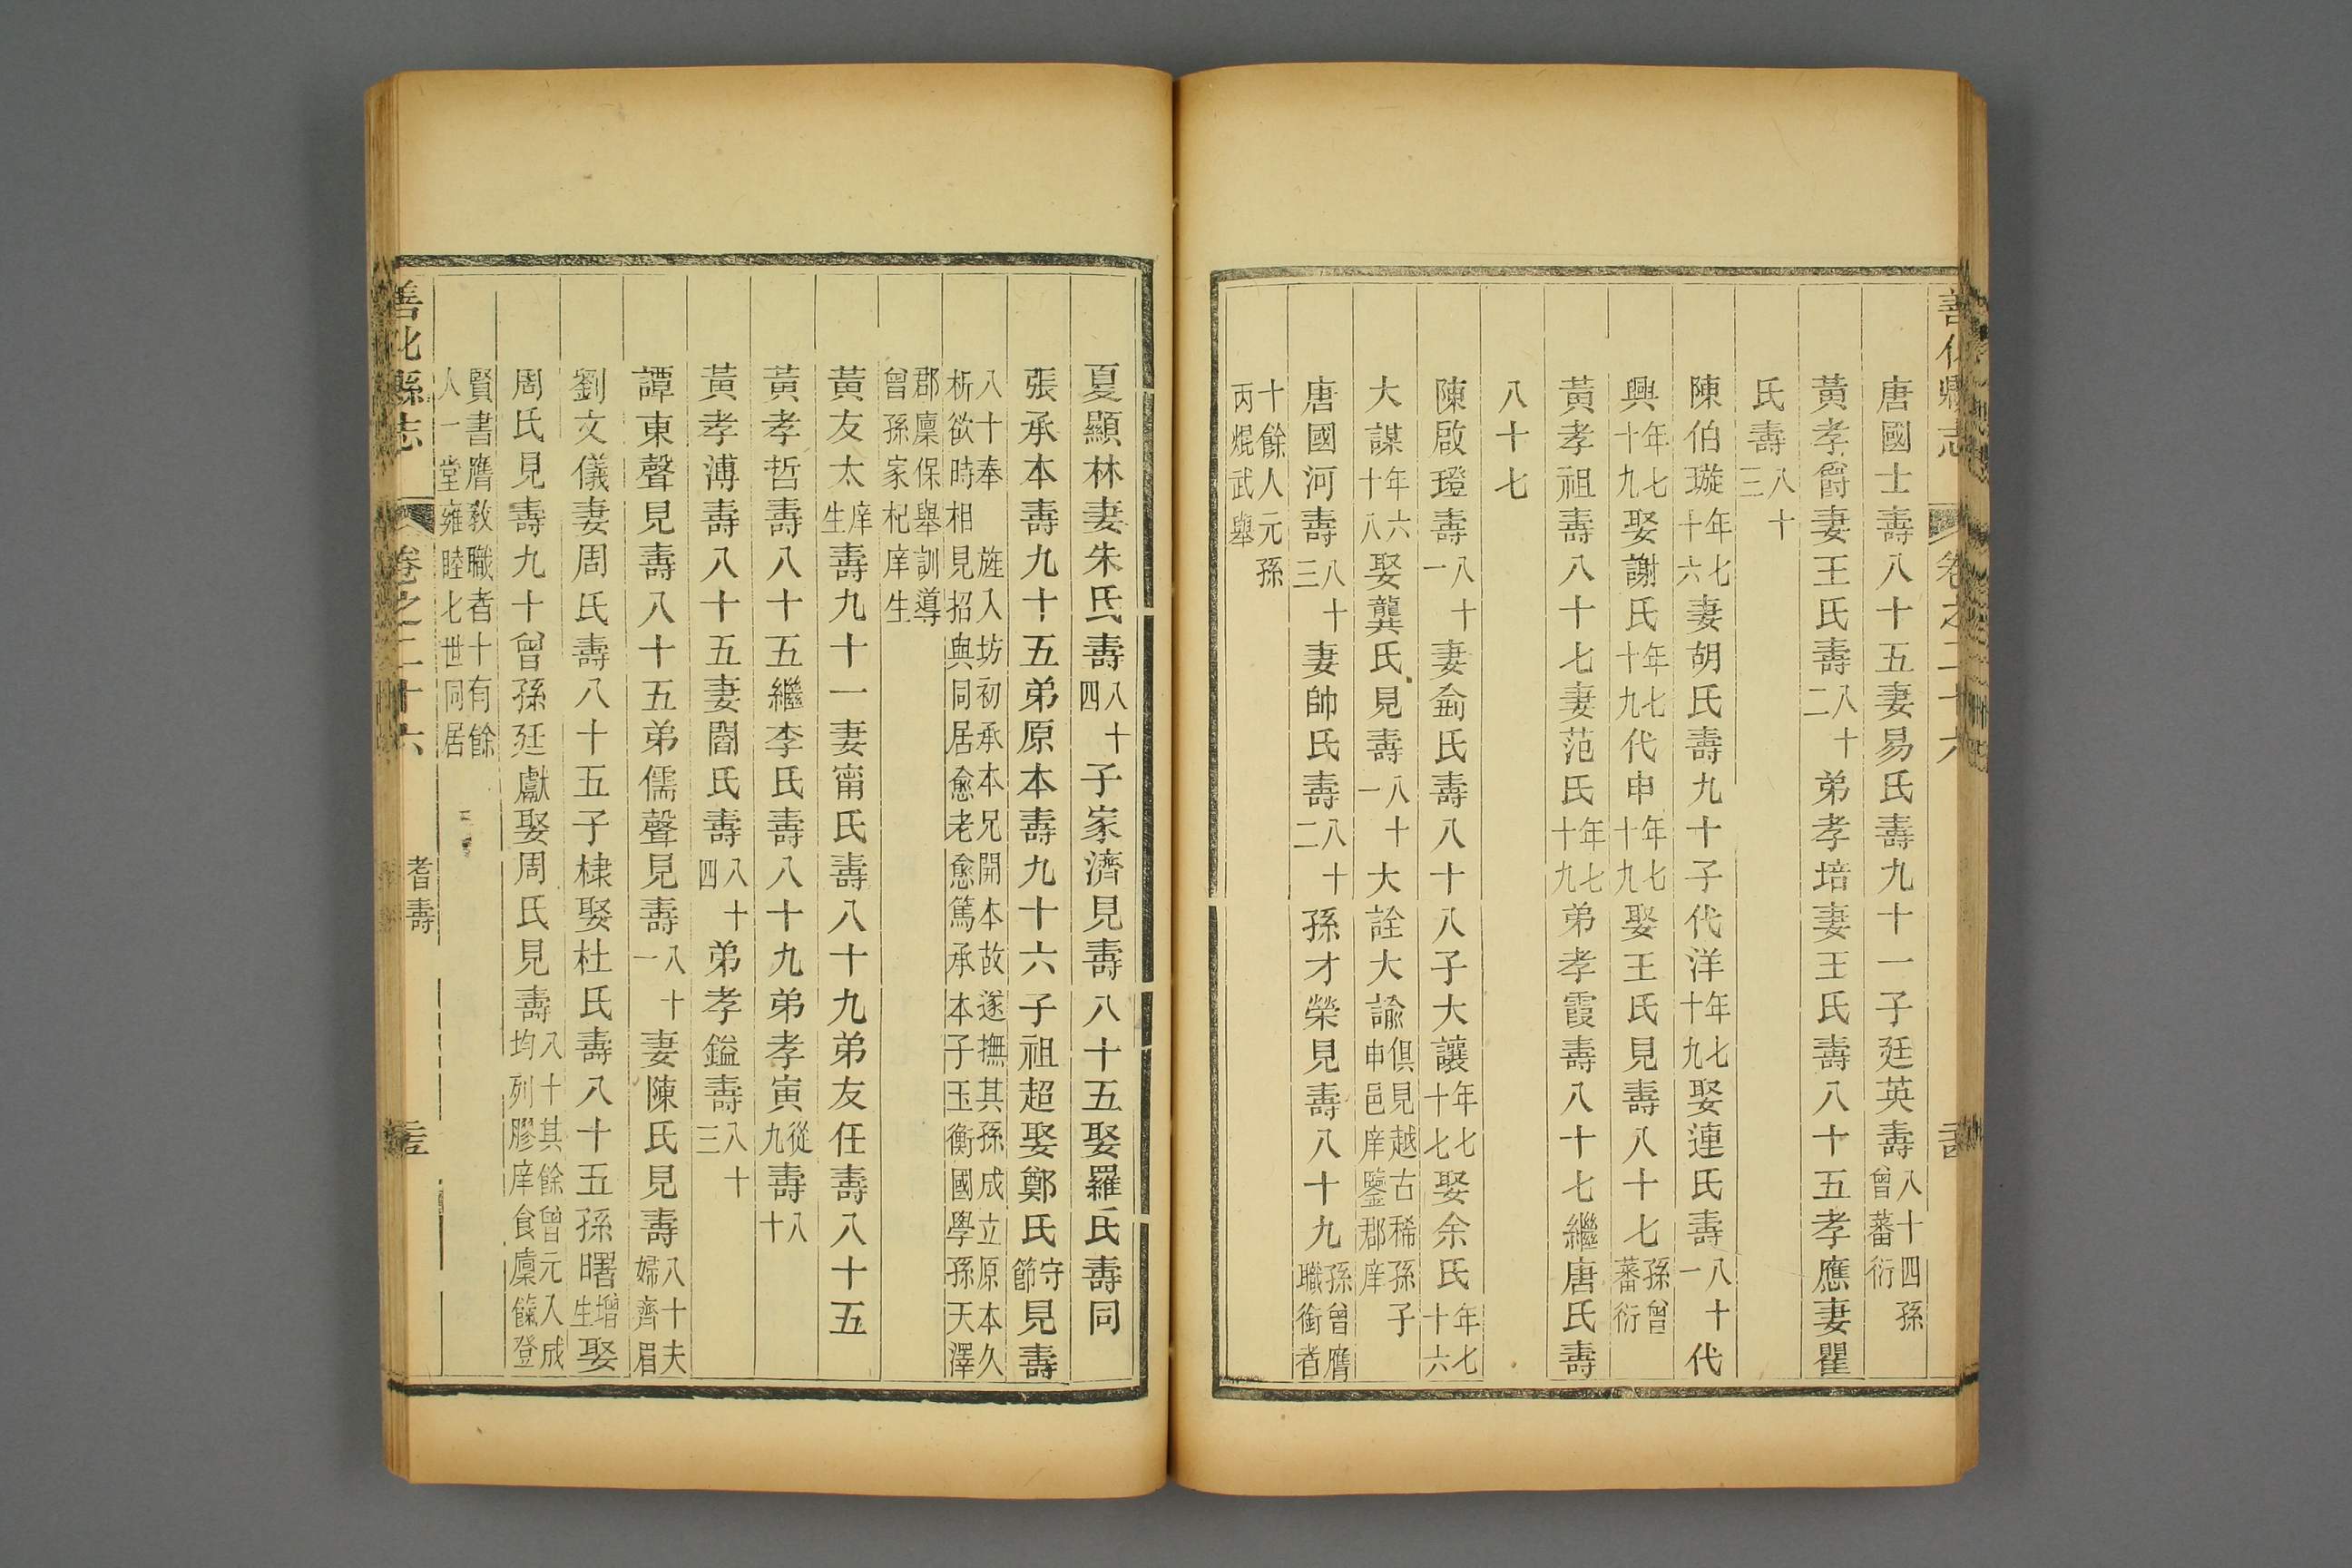 善化縣志 卷之二十六
唐國士壽八十五妻易氏壽九十一子廷英壽八十四孫曾蕃衍
黃孝爵妻王氏壽八十二弟孝培妻王氏壽八十五孝應妻瞿
氏壽八十三
陳伯璇年七十六妻胡氏壽九十子代洋年七十九娶連氏壽八十一代
興年七十九娶謝氏年七十九代申年七十九娶王氏見壽八十七孫曾蕃衍
黃孝祖壽八十七妻范氏年七十九弟孝霞壽八十七繼唐氏壽
八十七
陳啟璒壽八十一妻俞氏壽八十八子大讓年七十七娶余氏年七十六
大謀年六十八娶龔氏見壽八十一大詮大諭俱見越古稀孫子申邑庠鑒郡庠
唐國河壽八十三妻帥氏壽八十二孫才榮見壽八十九孫曾膺職銜者
十餘人元孫丙焜武舉
夏顯林妻朱氏壽八十四子家濟見壽八十五娶羅氏壽同
張承本壽九十五弟原本壽九十六子祖超娶鄭氏守節見壽
八十奉旌入坊初承本兄開本故遂撫其孫成立原本久
析欲時相見招與同居愈老愈篤承本子玉衡國學孫天澤
郡廩保舉訓導曾孫家杞庠生
黃友太庠生壽九十一妻甯氏壽八十九弟友任壽八十五
黃孝哲壽八十五繼李氏壽八十九弟孝寅從九壽八十
黃孝溥壽八十五妻閻氏壽八十四弟孝鎰壽八十三
譚東聲見壽八十五弟儒聲見壽八十一妻陳氏見壽八十夫婦齊眉
劉文儀妻周氏壽八十五子棣娶杜氏壽八十五孫曙增生娶
周氏見壽九十曾孫廷獻娶周氏見壽八十其餘曾元入成均列膠庠食廩餼登
賢書膺敎職者十有餘人一堂雍睦七世同居
善化縣志 卷之二十六 耆壽